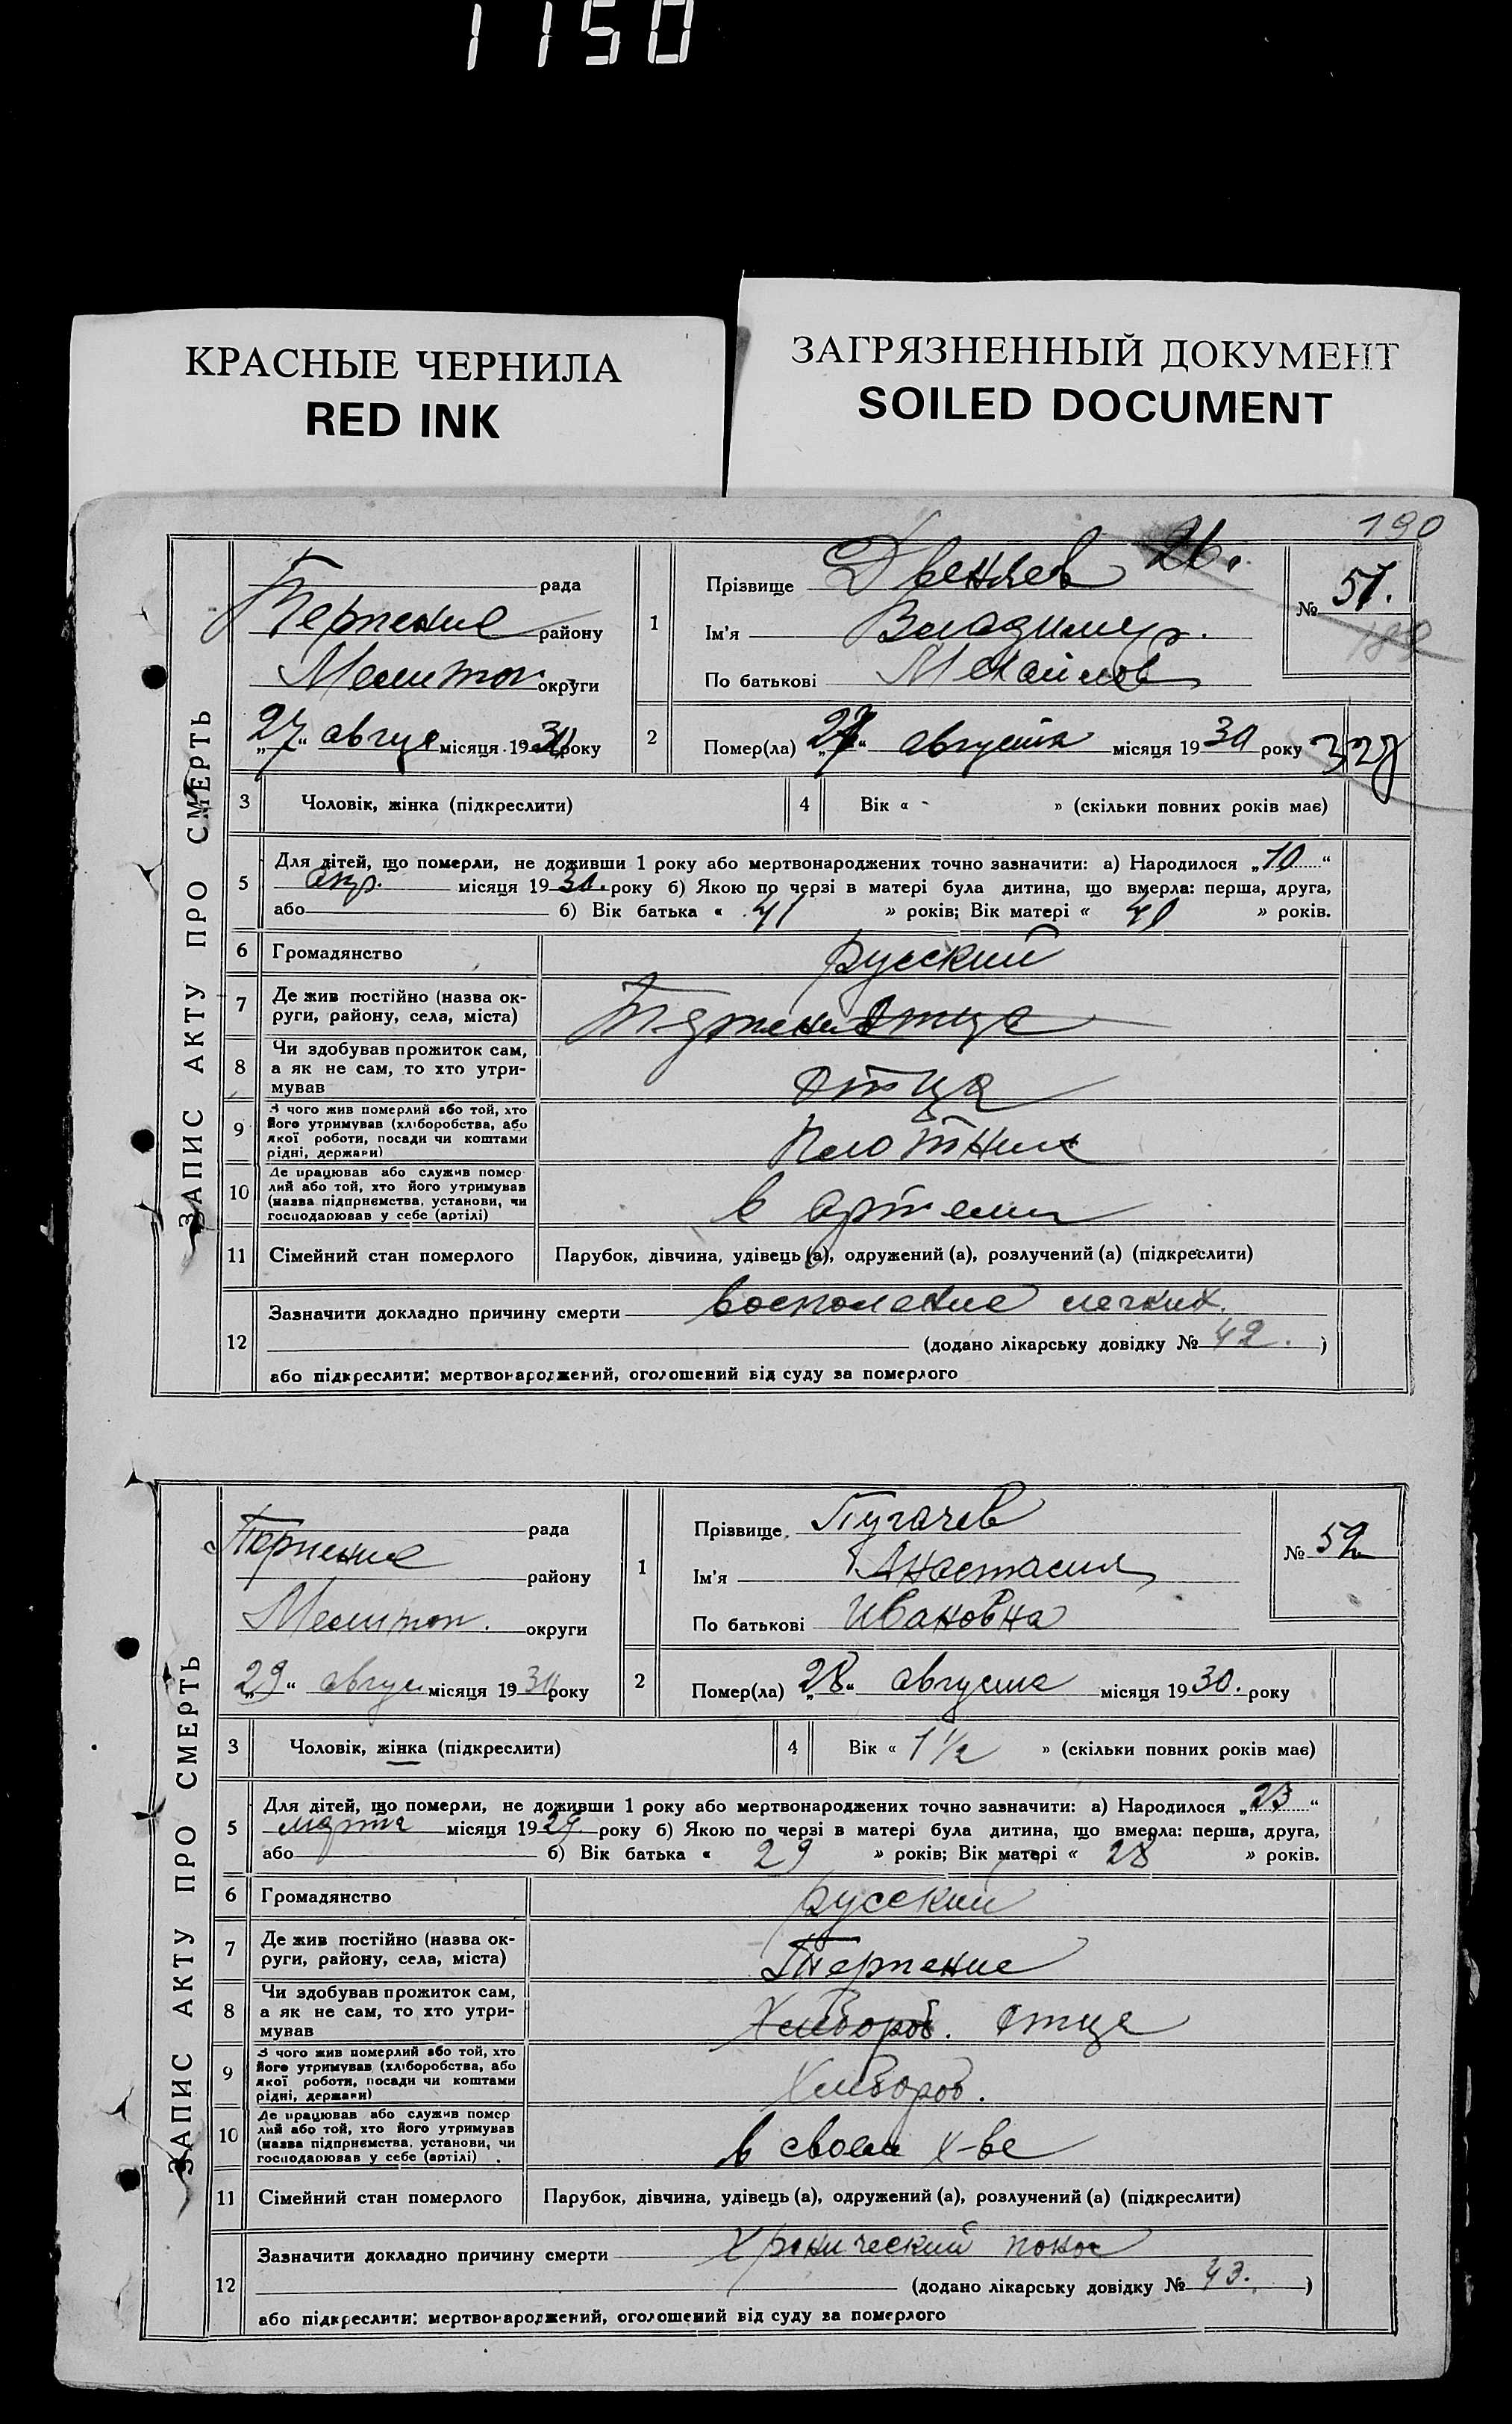 1150
КРАСНЫЕ ЧЕРНИЛА
RED INK
ЗАГРЯЗНЕННЫЙ ДОКУМЕНТ
SOILED DOCUMENT
190
ЗАПИС АКТУ ПРО СМЕРТЬ
рада
Терпение району
Мелитоп округи
„27“ авгус місяця 1930 року
1
Прізвище
Ім'я Владимир.
По батькові Михайлов
№ 51.
189
2
Помер(ла) „27“ августа місяця 1930 року
328
3
Чоловік, жінка (підкреслити)
4
Вік « - » (скільки повних років має)
5
Для дітей, що померли, не доживши 1 року або мертвонароджених точно зазначити: а) Народилося „10“
апр. місяця 1930. року б) Якою по черзі в матері була дитина, що вмерла: перша, друга,
або б) Вік батька « 41 » років; Вік матері « 40 » років.
6
Громадянство
русский
7
Де жив постійно (назва ок-
руги, району, села, міста)
8
Чи здобував прожиток сам,
а як не сам, то хто утри-
мував
отца
9
З чого жив померлий або той, хто
його утримував (хліборобства, або
якої роботи, посади чи коштами
рідні, держави)
Плотник
10
Де працював або служив помер
лий або той, хто його утримував
(назва підприємства, установи, чи
господарював у себе (артілі)
в артели
11
Сімейний стан померлого
Парубок, дівчина, удівець (а), одружений (а), розлучений (а) (підкреслити)
12
Зазначити докладно причину смерти восполение легких.
(додано лікарську довідку № 42. )
або підкреслити: мертвонароджений, оголошений від суду за померлого
ЗАПИС АКТУ ПРО СМЕРТЬ
рада
Терпение
району
Мелитоп. округи
„29“ авгус місяця 1930 року
1
Прізвище Пугачев
Ім'я Анастасия
По батькові Ивановна
№ 52
2
Помер(ла) „28“ августа місяця 1930. року
3
Чоловік, жінка (підкреслити)
4
Вік « 1 ½ » (скільки повних років має)
5
Для дітей, що померли, не доживши 1 року або мертвонароджених точно зазначити: а) Народилося „23“
марта місяця 1929 року б) Якою по черзі в матері була дитина, що вмерла: перша, друга,
або б) Вік батька « 29 » років; Вік матері « 28 » років.
6
Громадянство
русский
7
Де жив постійно (назва ок-
руги, району, села, міста)
Терпение
8
Чи здобував прожиток сам,
а як не сам, то хто утри-
мував
Хлебороб. отца
9
З чого жив померлий або той, хто
його утримував (хліборобства, або
якої роботи, посади чи коштами
рідні, держави)
Хлебороб.
10
Де працював або служив помер
лий або той, хто його утримував
(назва підприємства, установи, чи
господарював у себе (артілі)
в своем х-ве
11
Сімейний стан померлого
Парубок, дівчина, удівець (а), одружений (а), розлучений (а) (підкреслити)
12
Зазначити докладно причину смерти Хронический понос
(додано лікарську довідку № 43. )
або підкреслити: мертвонароджений, оголошений від суду за померлого